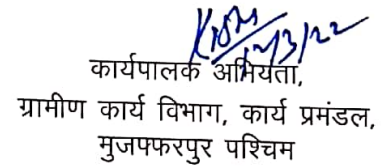 12/3/22
कार्यपालक अभियंता,
ग्रामीण कार्य विभाग, कार्य प्रमंडल,
मुजफ्फरपुर पश्चिम